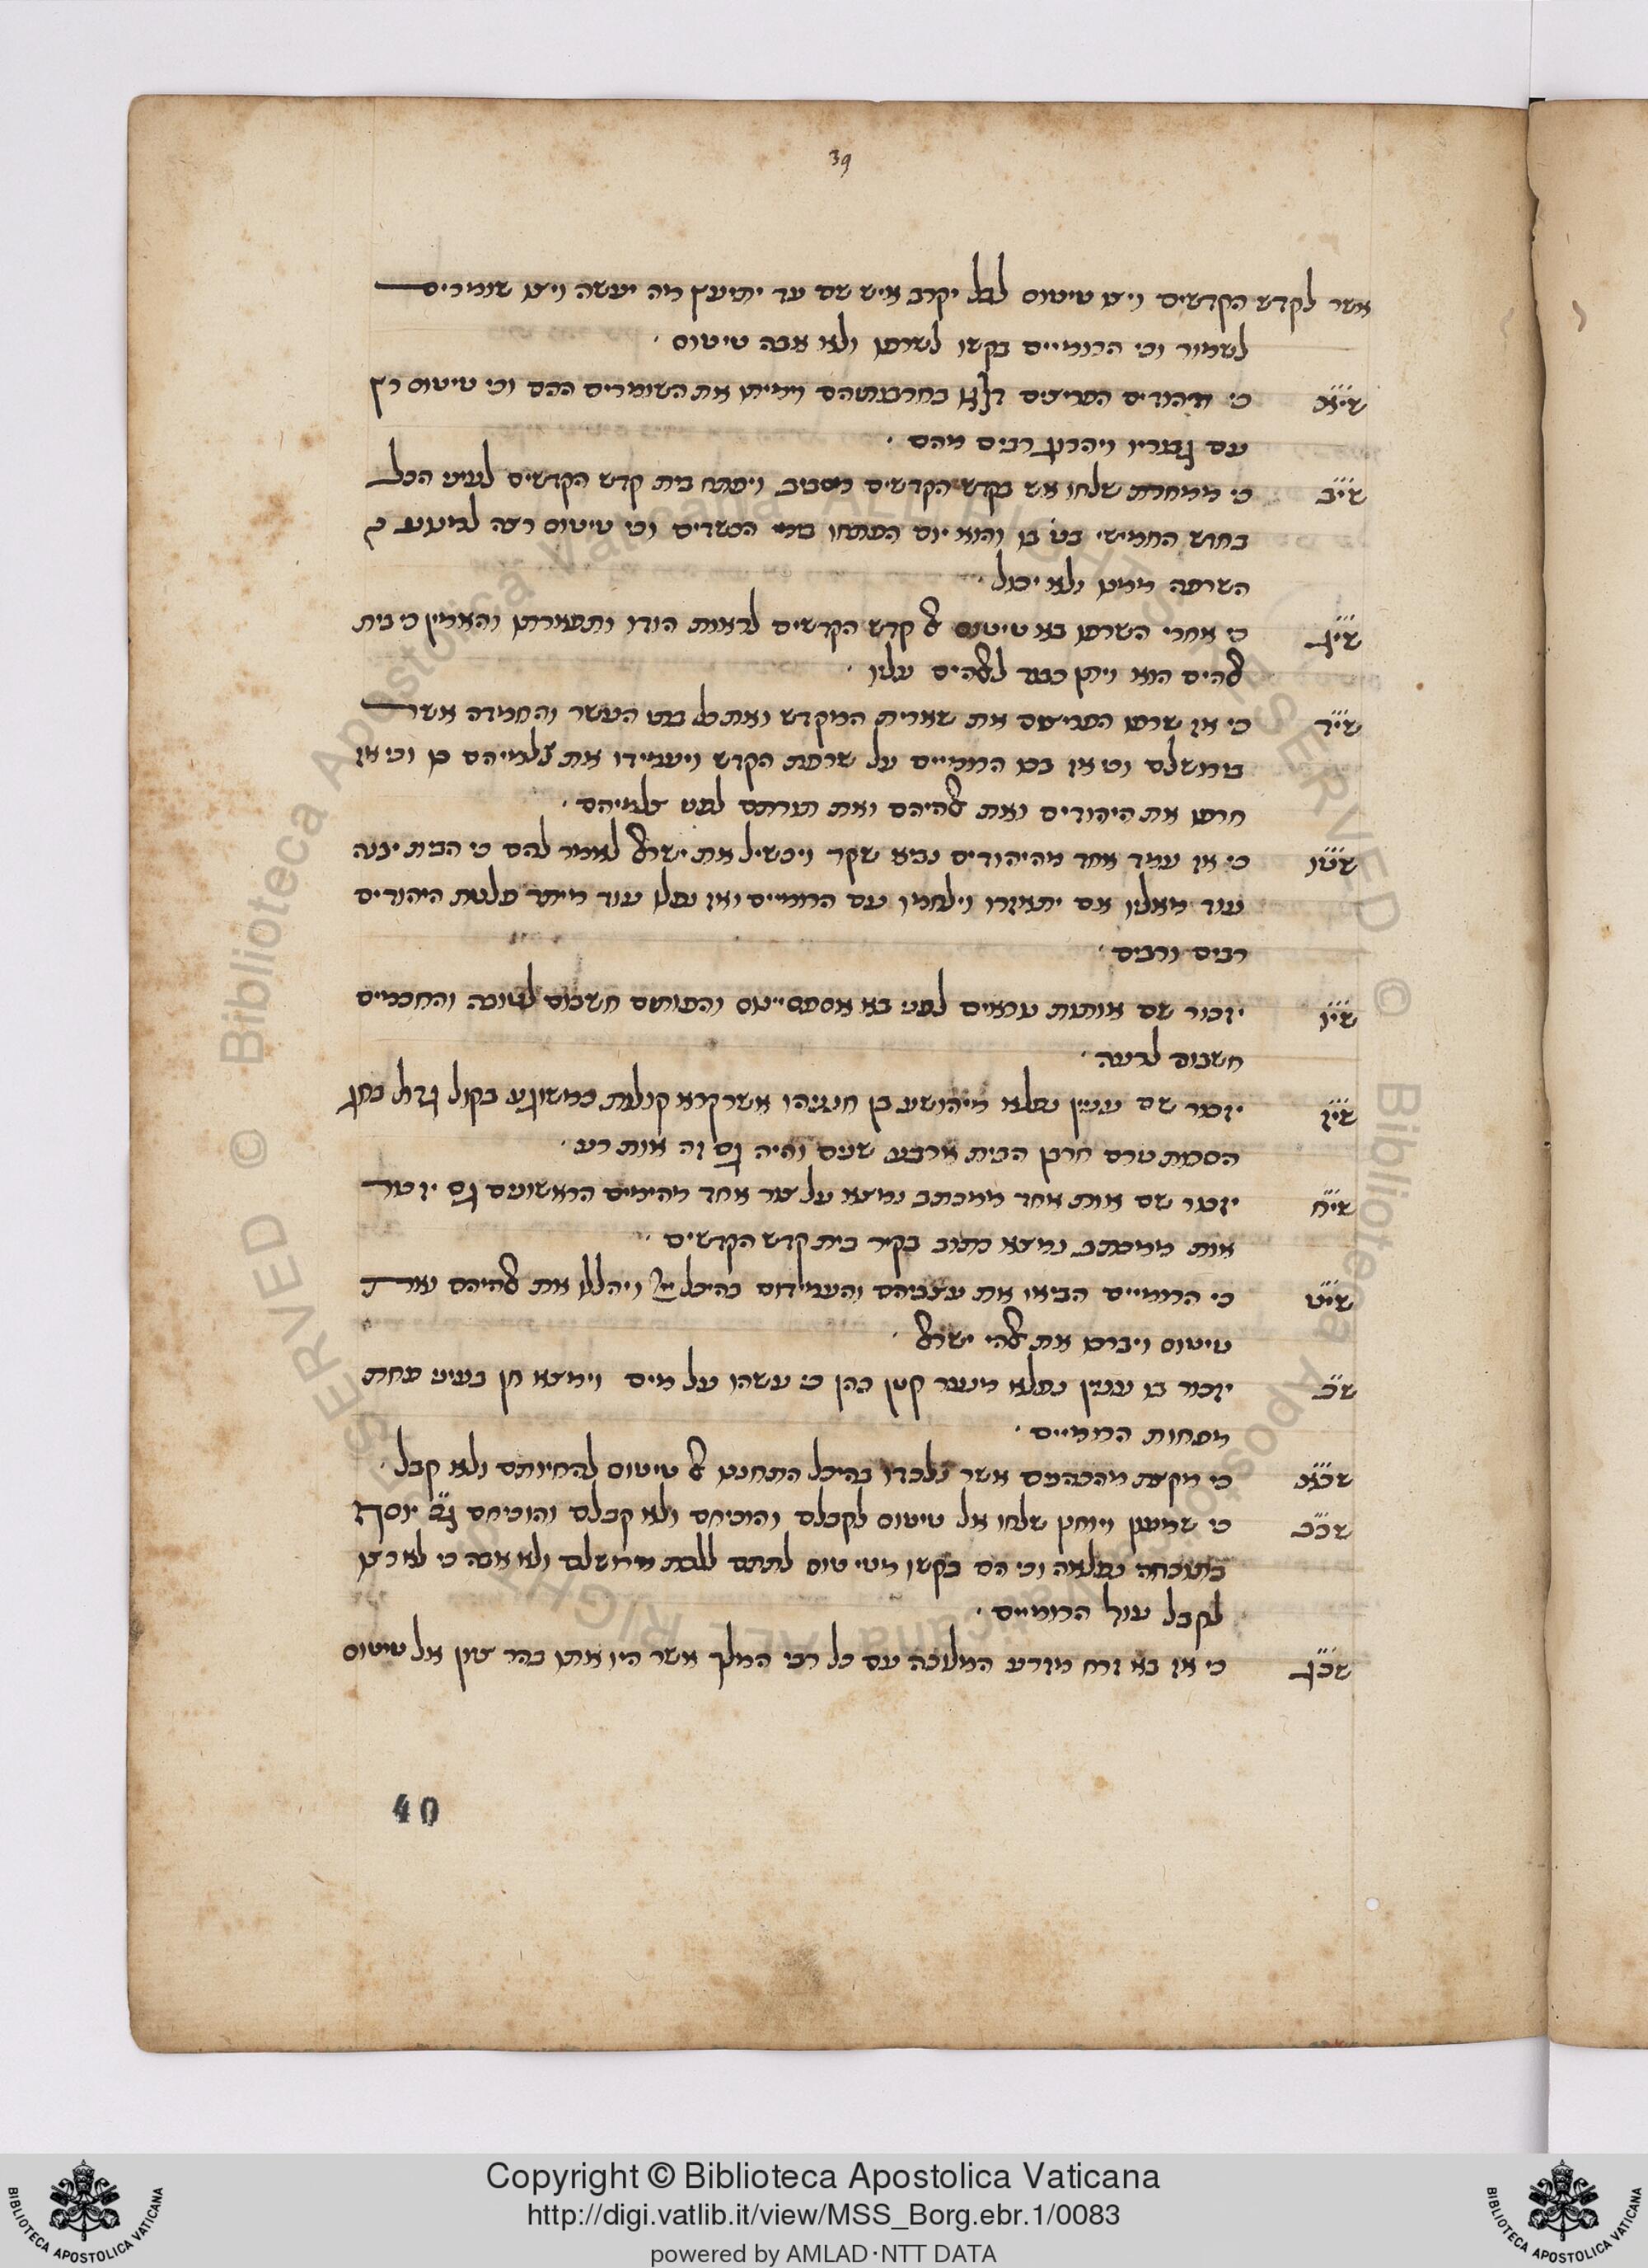 39
אשר לקדש הקדשים וישׂ טיטוס לבל יקרב איש שם עד יתיעץ מה יעשה וישׂ שומרים
לשמור וכי הרומיים בקשו לשרפו ולא אבה טיטוס ·
שי״א כי היהודים הפריצים בחרבותיהם וימיתו את השומרים ההם וכי טיטוס רץ
עם גבוריו ויהרגו רבים מהם ·
שי״ב כי ממחרת שלחו אש בקדש הקדשים מסביב ויפתח בית קדש הקדשים לעיני הכל
בחדש החמישי בט׳ בו והוא יום הפתחו בימי הכשדים וכי טיטוס רצה למנוע
השרפה ממנו ולא יכול ·
שי״ג כי אחרי השרפו בא טיטוס אל קדש הקדשים לראות הודו ותפארתו והאמין כי בית
אלהים הוא ויתן כבוד לאלהים עליו ·
שי״ד כי אז שרפו הפריצים את שארית המקדש ואת כל בתי העשר והחמדה אשר
בירושלם וכי אז בטחו הרומיים על שרפת הקדש ויעמידו את צלמיהם בו וכי אז
חרפו את היהודים ואת אלהיהם ואת תורתם לפני צלמיהם ·
שט״ו כי אז עמד אחד מהיהודים נביא שקר ויכשיל את ישראל לאמר להם כי הבית יבנה
עוד מאליו אם יתאזרו וילחמו עם הרומיים ואז נפלו עוד מיתר פלטת היהודים
רבים ורבים ·
שי״ו יזכור שם אותות נוראים לפני בא אספסיינוס והפותים חשבום לטובה והחכמים
חשבום לרעה ·
שי״ז יזכור שם ענין נפלא מיהושע בן חנניהו אשר קרא קולות כמשוגע בקול גדול בחג
הסכות טרם חרבן הבית ארבע שנים והיה גם זה אות רע ·
שי״ח יזכור שם אות אחר ממכתב נמצא על צור אחד מהימים הראשונים גם יזכור
אות ממכתב נמצא כתוב בקיר בית קדש הקדשים ·
שי״ט כי הרומיים הביאו את עצביהם והעמידום בהיכל ויהללו את אלהיהם
טיטוס ויברכו את אלהי ישראל ·
ש״כ יזכור בו ענין נפלא מנער קטן כהן כי עשהו על מים וימצא חן בעיני פחת
מפחות הרומיים ·
שכ״א כי מקצת מהכהנים אשר נלכדו בהיכל התחננו אל טיטוס להחיותם ולא קבל ·
שכ״ב כי שמעון ויוחנן שלחו אל טיטוס לקבלם והוכיחם ולא קבלם והוכיחם ג״כ יוסף
בתוכחה נפלאה וכי הם בקשו מטיטוס לתתם ללכת מירושלם ולא אבה כי לא רצו
לקבל עול הרומיים ·
שכ״ג כי אז בא זרח מזרע המלוכה עם כל רבי המלך אשר היו אתו בהר ציון אל טיטוס
40
Copyright © Biblioteca Apostolica Vaticana
http://digi.vatlib.it/view/MSS_Borg.ebr.1/0083
powered by AMLAD·NTT DATA